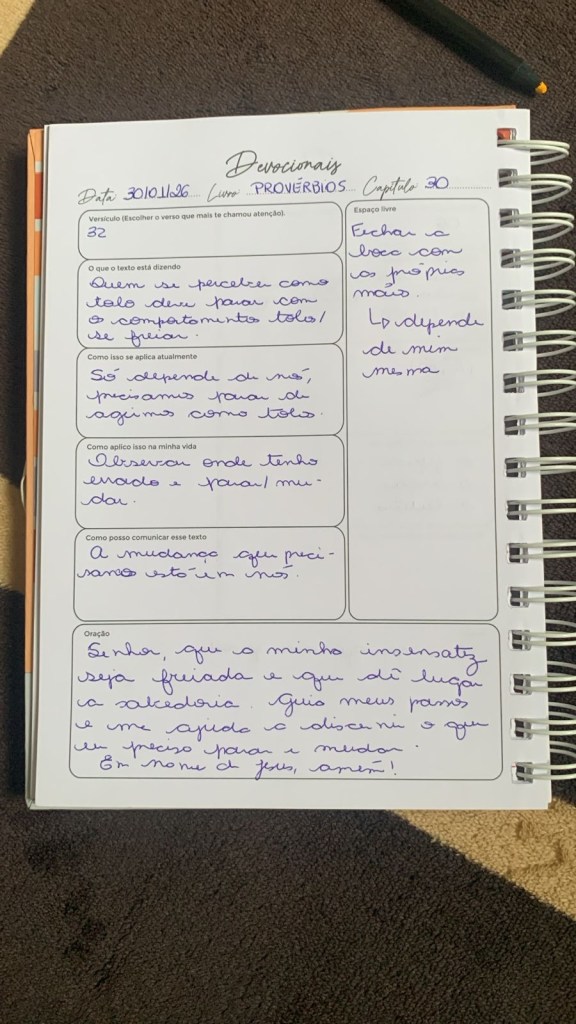 Devocionais
Data 30/01/26 Livro PROVÉRBIOS Capítulo 30
Versículo (Escolher o verso que mais te chamou atenção).
32
O que o texto está dizendo
Quem se perceber como
tolo deve parar com
o comportamento tolo/
se freiar.
Como isso se aplica atualmente
Só depende de nós,
precisamos parar de
agirmos como tolos.
Como aplico isso na minha vida
Observar onde tenho
errado e parar/mu-
dar.
Como posso comunicar esse texto
A mudança que preci-
samos está em nós.
Espaço livre
Fechar a
boca com
as próprias
mãos.
↳ depende
de mim
mesma
Oração
Senhor, que a minha insensatez
seja freiada e que dê lugar
a sabedoria. Guia meus passos
e me ajuda a discernir o que
eu preciso parar e mudar.
Em nome de Jesus, amém!